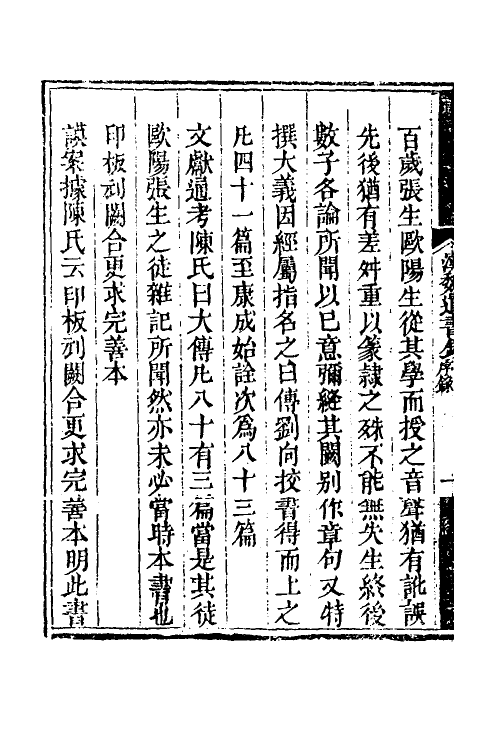 百歲張生歐陽生從其學而授之音聲猶有訛誤
先後猶有差舛重以篆隸之殊不能無失生終後
數子各論所聞以巳意彌縫其闕别作章句又特
撰大義因經屬指名之曰傳劉向挍書得而上之
凡四十一篇至康成始詮次爲八十三篇
文獻通考陳氏曰大傳凡八十有三篇當是其徒
歐陽張生之徒雜記所聞然亦未必當時本書也
印板刓闕合更求完善本
謨案據陳氏云印板刓闕合更求完善本明此書